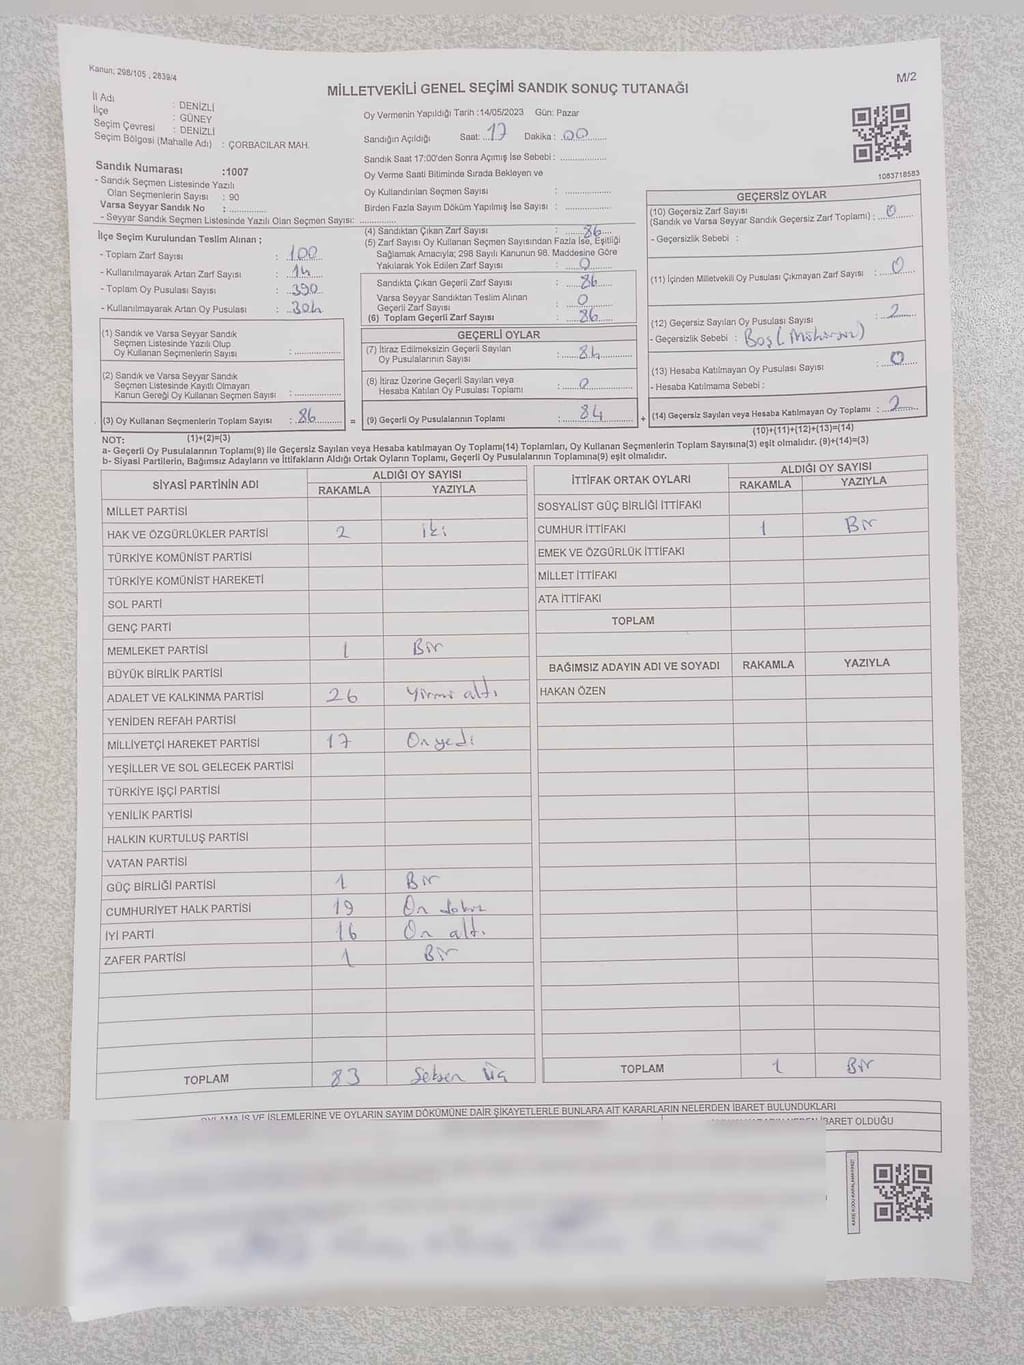 Kanun; 298/105 , 2839/4
M/2
MİLLETVEKİLİ GENEL SEÇİMİ SANDIK SONUÇ TUTANAĞI
İl Adı : DENİZLİ
İlçe : GÜNEY
Seçim Çevresi : DENİZLİ
Seçim Bölgesi (Mahalle Adı) : ÇORBACILAR MAH.
Sandık Numarası :1007
- Sandık Seçmen Listesinde Yazılı
Olan Seçmenlerin Sayısı : 90
Varsa Seyyar Sandık No :
- Seyyar Sandık Seçmen Listesinde Yazılı Olan Seçmen Sayısı:
Oy Vermenin Yapıldığı Tarih :14/05/2023 Gün: Pazar
Sandığın Açıldığı Saat: 17 Dakika : 00
Sandık Saat 17:00'den Sonra Açımış İse Sebebi :
Oy Verme Saati Bitiminde Sırada Bekleyen ve
Oy Kullandırılan Seçmen Sayısı :
Birden Fazla Sayım Döküm Yapılmış İse Sayısı :
1083718583
İlçe Seçim Kurulundan Teslim Alınan ;
- Toplam Zarf Sayısı : 100
- Kullanılmayarak Artan Zarf Sayısı : 14
- Toplam Oy Pusulası Sayısı : 390
- Kullanılmayarak Artan Oy Pusulası : 304
(1) Sandık ve Varsa Seyyar Sandık
Seçmen Listesinde Yazılı Olup
Oy Kullanan Seçmenlerin Sayısı :
(2) Sandık ve Varsa Seyyar Sandık
Seçmen Listesinde Kayıtlı Olmayan
Kanun Gereği Oy Kullanan Seçmen Sayısı :
(3) Oy Kullanan Seçmenlerin Toplam Sayısı : 86
(4) Sandıktan Çıkan Zarf Sayısı : 86
(5) Zarf Sayısı Oy Kullanan Seçmen Sayısından Fazla İse, Eşitliği
Sağlamak Amacıyla; 298 Sayılı Kanunun 98. Maddesine Göre
Yakılarak Yok Edilen Zarf Sayısı : 0
Sandıkta Çıkan Geçerli Zarf Sayısı : 86
Varsa Seyyar Sandıktan Teslim Alınan
Geçerli Zarf Sayısı : 0
(6) Toplam Geçerli Zarf Sayısı : 86
GEÇERLİ OYLAR
(7) İtiraz Edilmeksizin Geçerli Sayılan
Oy Pusulalarının Sayısı : 84
(8) İtiraz Üzerine Geçerli Sayılan veya
Hesaba Katılan Oy Pusulası Toplamı : 0
= (9) Geçerli Oy Pusulalarının Toplamı : 84 +
GEÇERSİZ OYLAR
(10) Geçersiz Zarf Sayısı
(Sandık ve Varsa Seyyar Sandık Geçersiz Zarf Toplamı) : 0
- Geçersizlik Sebebi :
(11) İçinden Milletvekili Oy Pusulası Çıkmayan Zarf Sayısı : 0
(12) Geçersiz Sayılan Oy Pusulası Sayısı : 2
- Geçersizlik Sebebi : Boş (Mühürsüz)
(13) Hesaba Katılmayan Oy Pusulası Sayısı : 0
- Hesaba Katılmama Sebebi :
(14) Geçersiz Sayılan veya Hesaba Katılmayan Oy Toplamı : 2
(10)+(11)+(12)+(13)=(14)
NOT: (1)+(2)=(3)
a- Geçerli Oy Pusulalarının Toplamı(9) ile Geçersiz Sayılan veya Hesaba katılmayan Oy Toplamı(14) Toplamları, Oy Kullanan Seçmenlerin Toplam Sayısına(3) eşit olmalıdır. (9)+(14)=(3)
b- Siyasi Partilerin, Bağımsız Adayların ve İttifakların Aldığı Ortak Oyların Toplamı, Geçerli Oy Pusulalarının Toplamına(9) eşit olmalıdır.
SİYASİ PARTİNİN ADI ALDIĞI OY SAYISI
RAKAMLA YAZIYLA
MİLLET PARTİSİ
HAK VE ÖZGÜRLÜKLER PARTİSİ 2 iki
TÜRKİYE KOMÜNİST PARTİSİ
TÜRKİYE KOMÜNİST HAREKETİ
SOL PARTİ
GENÇ PARTİ
MEMLEKET PARTİSİ 1 Bir
BÜYÜK BİRLİK PARTİSİ
ADALET VE KALKINMA PARTİSİ 26 Yirmi altı
YENİDEN REFAH PARTİSİ
MİLLİYETÇİ HAREKET PARTİSİ 17 On yedi
YEŞİLLER VE SOL GELECEK PARTİSİ
TÜRKİYE İŞÇİ PARTİSİ
YENİLİK PARTİSİ
HALKIN KURTULUŞ PARTİSİ
VATAN PARTİSİ
GÜÇ BİRLİĞİ PARTİSİ 1 Bir
CUMHURİYET HALK PARTİSİ 19 On dokuz
İYİ PARTİ 16 On altı
ZAFER PARTİSİ 1 Bir
TOPLAM 83 Seksen Üç
İTTİFAK ORTAK OYLARI ALDIĞI OY SAYISI
RAKAMLA YAZIYLA
SOSYALİST GÜÇ BİRLİĞİ İTTİFAKI
CUMHUR İTTİFAKI 1 Bir
EMEK VE ÖZGÜRLÜK İTTİFAKI
MİLLET İTTİFAKI
ATA İTTİFAKI
TOPLAM
BAĞIMSIZ ADAYIN ADI VE SOYADI RAKAMLA YAZIYLA
HAKAN ÖZEN
TOPLAM 1 Bir
OYLAMA İŞ VE İŞLEMLERİNE VE OYLARIN SAYIM DÖKÜMÜNE DAİR ŞİKAYETLERLE BUNLARA AİT KARARLARIN NELERDEN İBARET BULUNDUKLARI
İBARET OLDUĞU